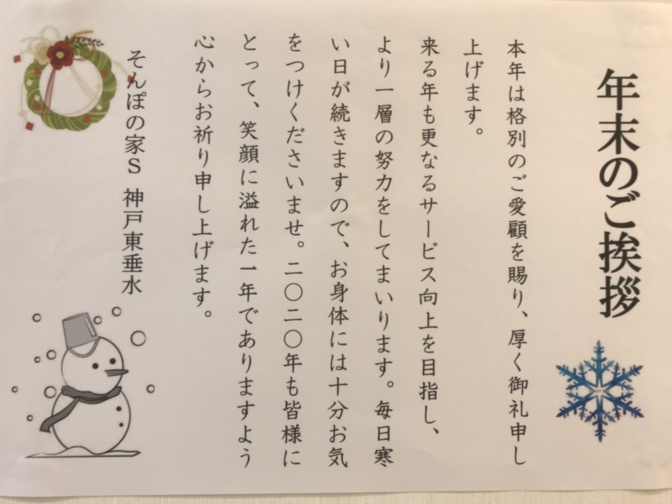 年末のご挨拶
本年は格別のご愛顧を賜り、厚く御礼申し
上げます。
来る年も更なるサービス向上を目指し、
より一層の努力をしてまいります。毎日寒
い日が続きますので、お身体には十分お気
をつけくださいませ。二〇二〇年も皆様に
とって、笑顔に溢れた一年でありますよう
心からお祈り申し上げます。
そんぽの家S 神戸東垂水